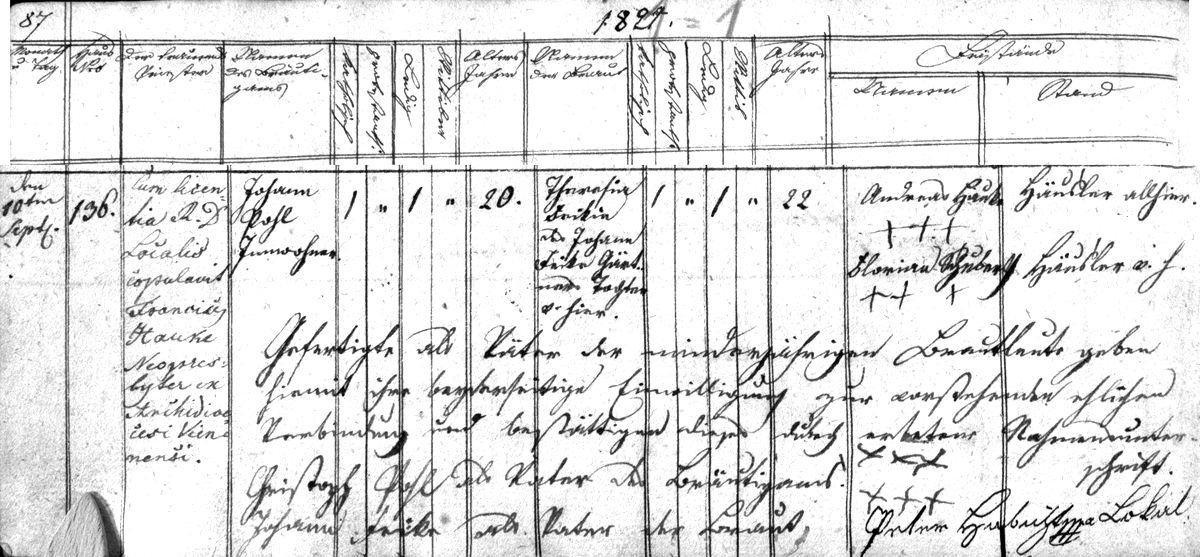 87
1824. = 1
Monath u. Tag.
Haus Nro
Der trauende Priester
Namen des Bräutigams
Katholisch
Protestant.
Ledig
Wittiber
Alters Jahre
Namen der Braut
Katholisch
Protestant.
Ledig
Wittib
Alters Jahre
Beystände
Namen
Stand
den 10ten Sept.
136.
Cum licen
tia R. D.
Localis
copulavit
Franciscus
Hauke
Neopres-
byter ex
Archidioe
cesi Vien
nensi.
Johann
Pohl
Innwohner.
1 " 1 " 20.
Theresia
Feikin
des Johann
Feike Gärt-
ners Tochter
v. hier.
1 " 1 " 22
Andreas Hauke
+ + +
Häusler allhier.
Florian Schubert
+ + +
Häusler v. h.
Gefertigte als Väter der minderjährigen Brautleute geben
hiemit ihre beyderseitige Einwilligung zur vorstehenden ehlichen
Verbindung und bestättigen dieses durch erbetene Nahmensunter
schrift.
Christoph Pohl als Vater des Bräutigams. +++
Johann Feike als Vater der Braut. +++
Peter Lokal.